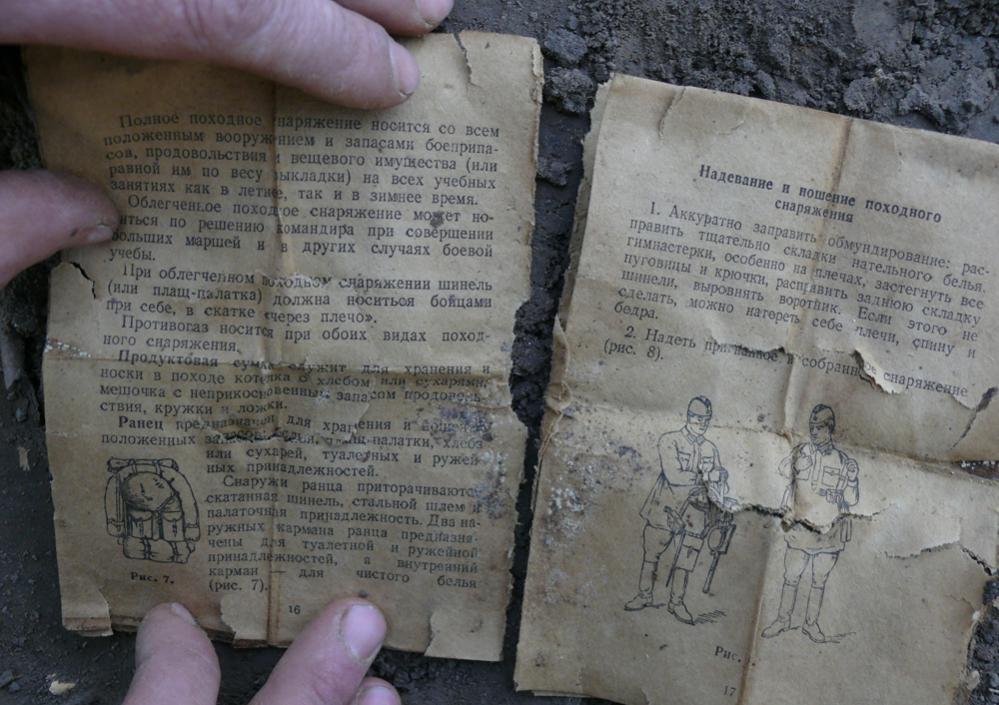 Полное походное снаряжение носится со всем
положенным вооружением и запасами боеприпа-
сов, продовольствия и вещевого имущества (или
равной им по весу выкладки) на всех учебных
занятиях как в летнее, так и в зимнее время.
Облегченное походное снаряжение может но-
ситься по решению командира при совершении
больших маршей и в других случаях боевой
учебы.
При облегченном походном снаряжении шинель
(или плащ-палатка) должна носиться бойцами
при себе, в скатке «через плечо».
Противогаз носится при обоих видах поход-
ного снаряжения.
Продуктовая сумка служит для хранения и
носки в походе котелка с хлебом или сухарями,
мешочка с неприкосновенным запасом продоволь-
ствия, кружки и ложки.
Ранец предназначен для хранения и ношения
положенных плащ-палатки, хлеба
или сухарей, туалетных и ружей-
ных принадлежностей.
Снаружи ранца приторачиваются
скатанная шинель, стальной шлем и
палаточная принадлежность. Два на-
ружных кармана ранца предназна-
чены для туалетной и ружейной
принадлежностей, а внутренний
карман — для чистого белья
(рис. 7).
Рис. 7.
16
Надевание и ношение походного
снаряжения
1. Аккуратно заправить обмундирование: рас-
править тщательно складки нательного белья,
гимнастерки, особенно на плечах, застегнуть все
пуговицы и крючки, расправить заднюю складку
шинели, выровнять воротник. Если этого не
сделать, можно натереть себе плечи, спину и
бедра.
2. Надеть пригнанное и собранное снаряжение
(рис. 8).
Рис.
17